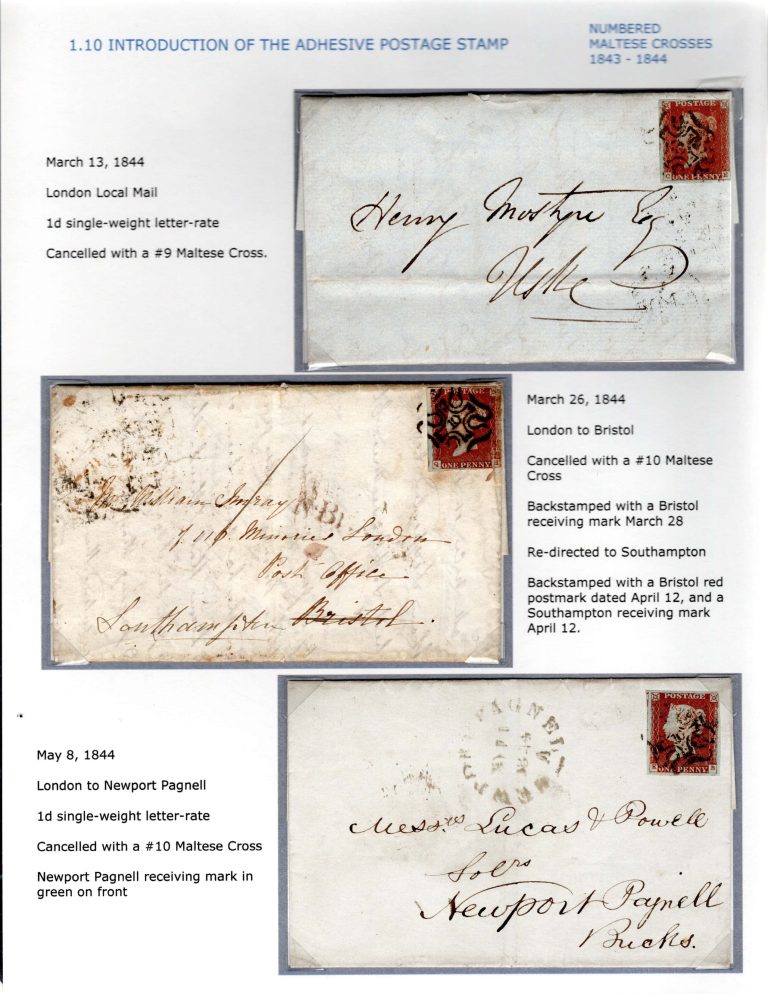 1.10 INTRODUCTION OF THE ADHESIVE POSTAGE STAMP
NUMBERED
MALTESE CROSSES
1843 - 1844
March 13, 1844
London Local Mail
1d single-weight letter-rate
Cancelled with a #9 Maltese Cross.
POSTAGE
ONE PENNY
Henry Mostyn Esq
Uske
March 26, 1844
London to Bristol
Cancelled with a #10 Maltese
Cross
Backstamped with a Bristol
receiving mark March 28
Re-directed to Southampton
Backstamped with a Bristol red
postmark dated April 12, and a
Southampton receiving mark
April 12.
POSTAGE
10
ONE PENNY
Mr William Imray
116 Minories London
Post Office
Southampton Bristol.
May 8, 1844
London to Newport Pagnell
1d single-weight letter-rate
Cancelled with a #10 Maltese Cross
Newport Pagnell receiving mark in
green on front
NEWPORT PAGNELL
POSTAGE
ONE PENNY
Messrs Lucas & Powell
Solrs
Newport Pagnell
Bucks.